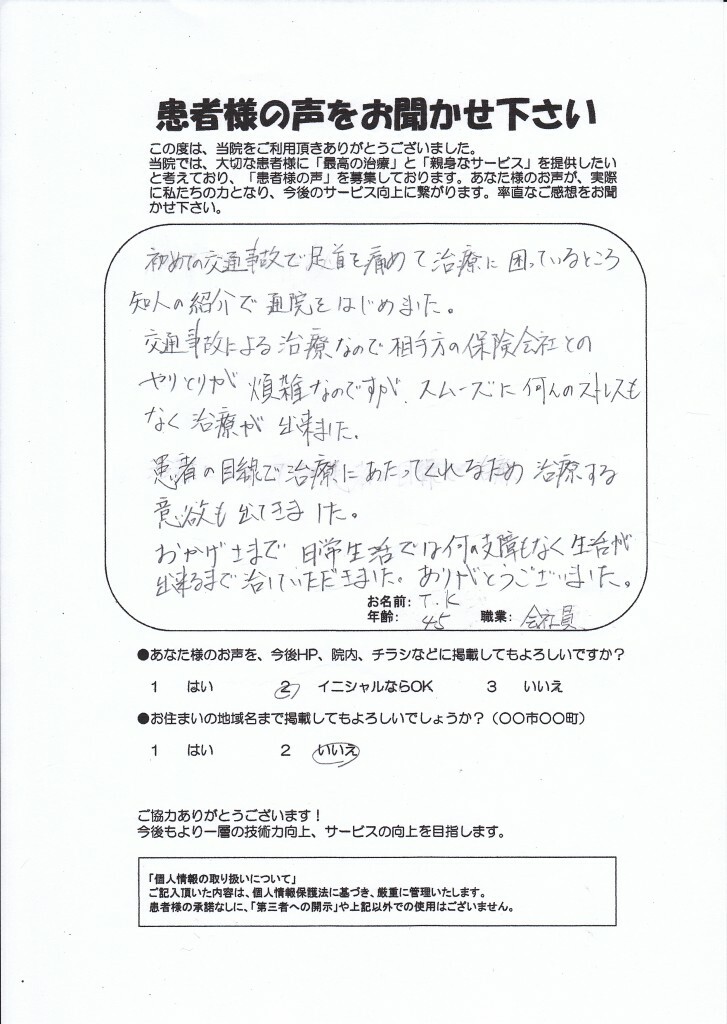 患者様の声をお聞かせ下さい
この度は、当院をご利用頂きありがとうございました。
当院では、大切な患者様に「最高の治療」と「親身なサービス」を提供したい
と考えており、「患者様の声」を募集しております。あなた様のお声が、実際
に私たちの力となり、今後のサービス向上に繋がります。率直なご感想をお聞
かせ下さい。
初めての交通事故で足首を痛めて治療に困っているところ
知人の紹介で通院をはじめました。
交通事故による治療なので相手方の保険会社との
やりとりが煩雑なのですが、スムーズに何んのストレスも
なく治療が出来ました。
患者の目線で治療にあたってくれるため治療する
意欲も出てきました。
おかげさまで日常生活では何の支障もなく生活が
出来るまで治していただきました。ありがとうございました。
お名前: T.K
年齢: 45 職業: 会社員
●あなた様のお声を、今後HP、院内、チラシなどに掲載してもよろしいですか？
1 はい 2 イニシャルならOK 3 いいえ
●お住まいの地域名まで掲載してもよろしいでしょうか？（〇〇市〇〇町）
1 はい 2 いいえ
ご協力ありがとうございます！
今後もより一層の技術力向上、サービスの向上を目指します。
「個人情報の取り扱いについて」
ご記入頂いた内容は、個人情報保護法に基づき、厳重に管理いたします。
患者様の承諾なしに、「第三者への開示」や上記以外での使用はございません。